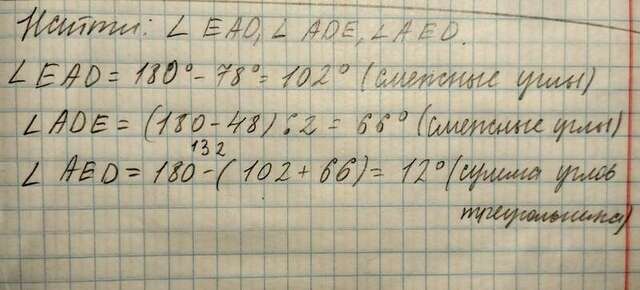 Найти: ∠ EAD, ∠ ADE, ∠ AED.
∠ EAD = 180° - 78° = 102° (смежные углы)
∠ ADE = (180 - 48) : 2 = 66° (смежные углы)
132
∠ AED = 180 - (102 + 66) = 12° (сумма углов
треугольника)